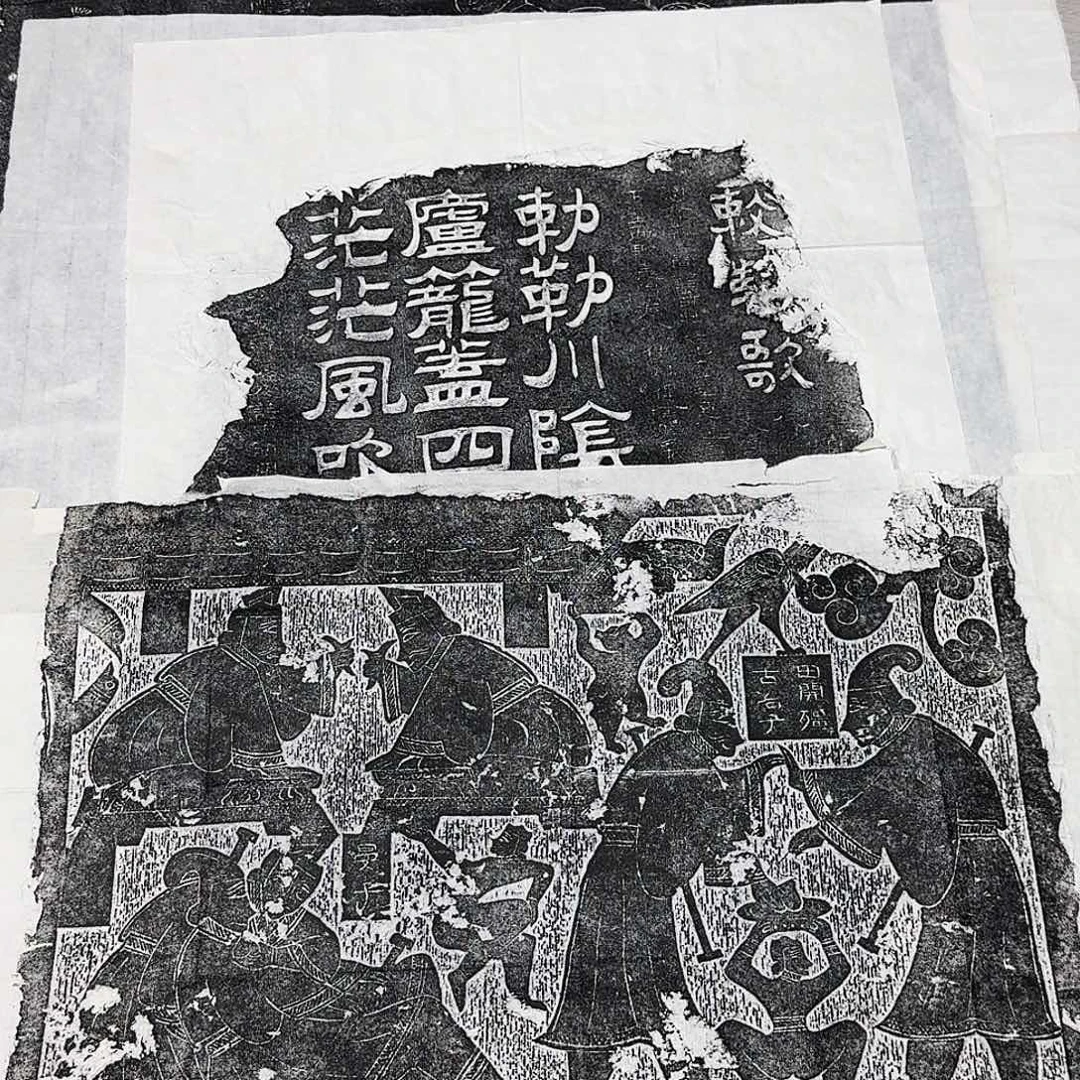 敕勒歌
勅勒川陰
廬籠蓋四
茫茫風吹
田開疆
古冶子
晏子